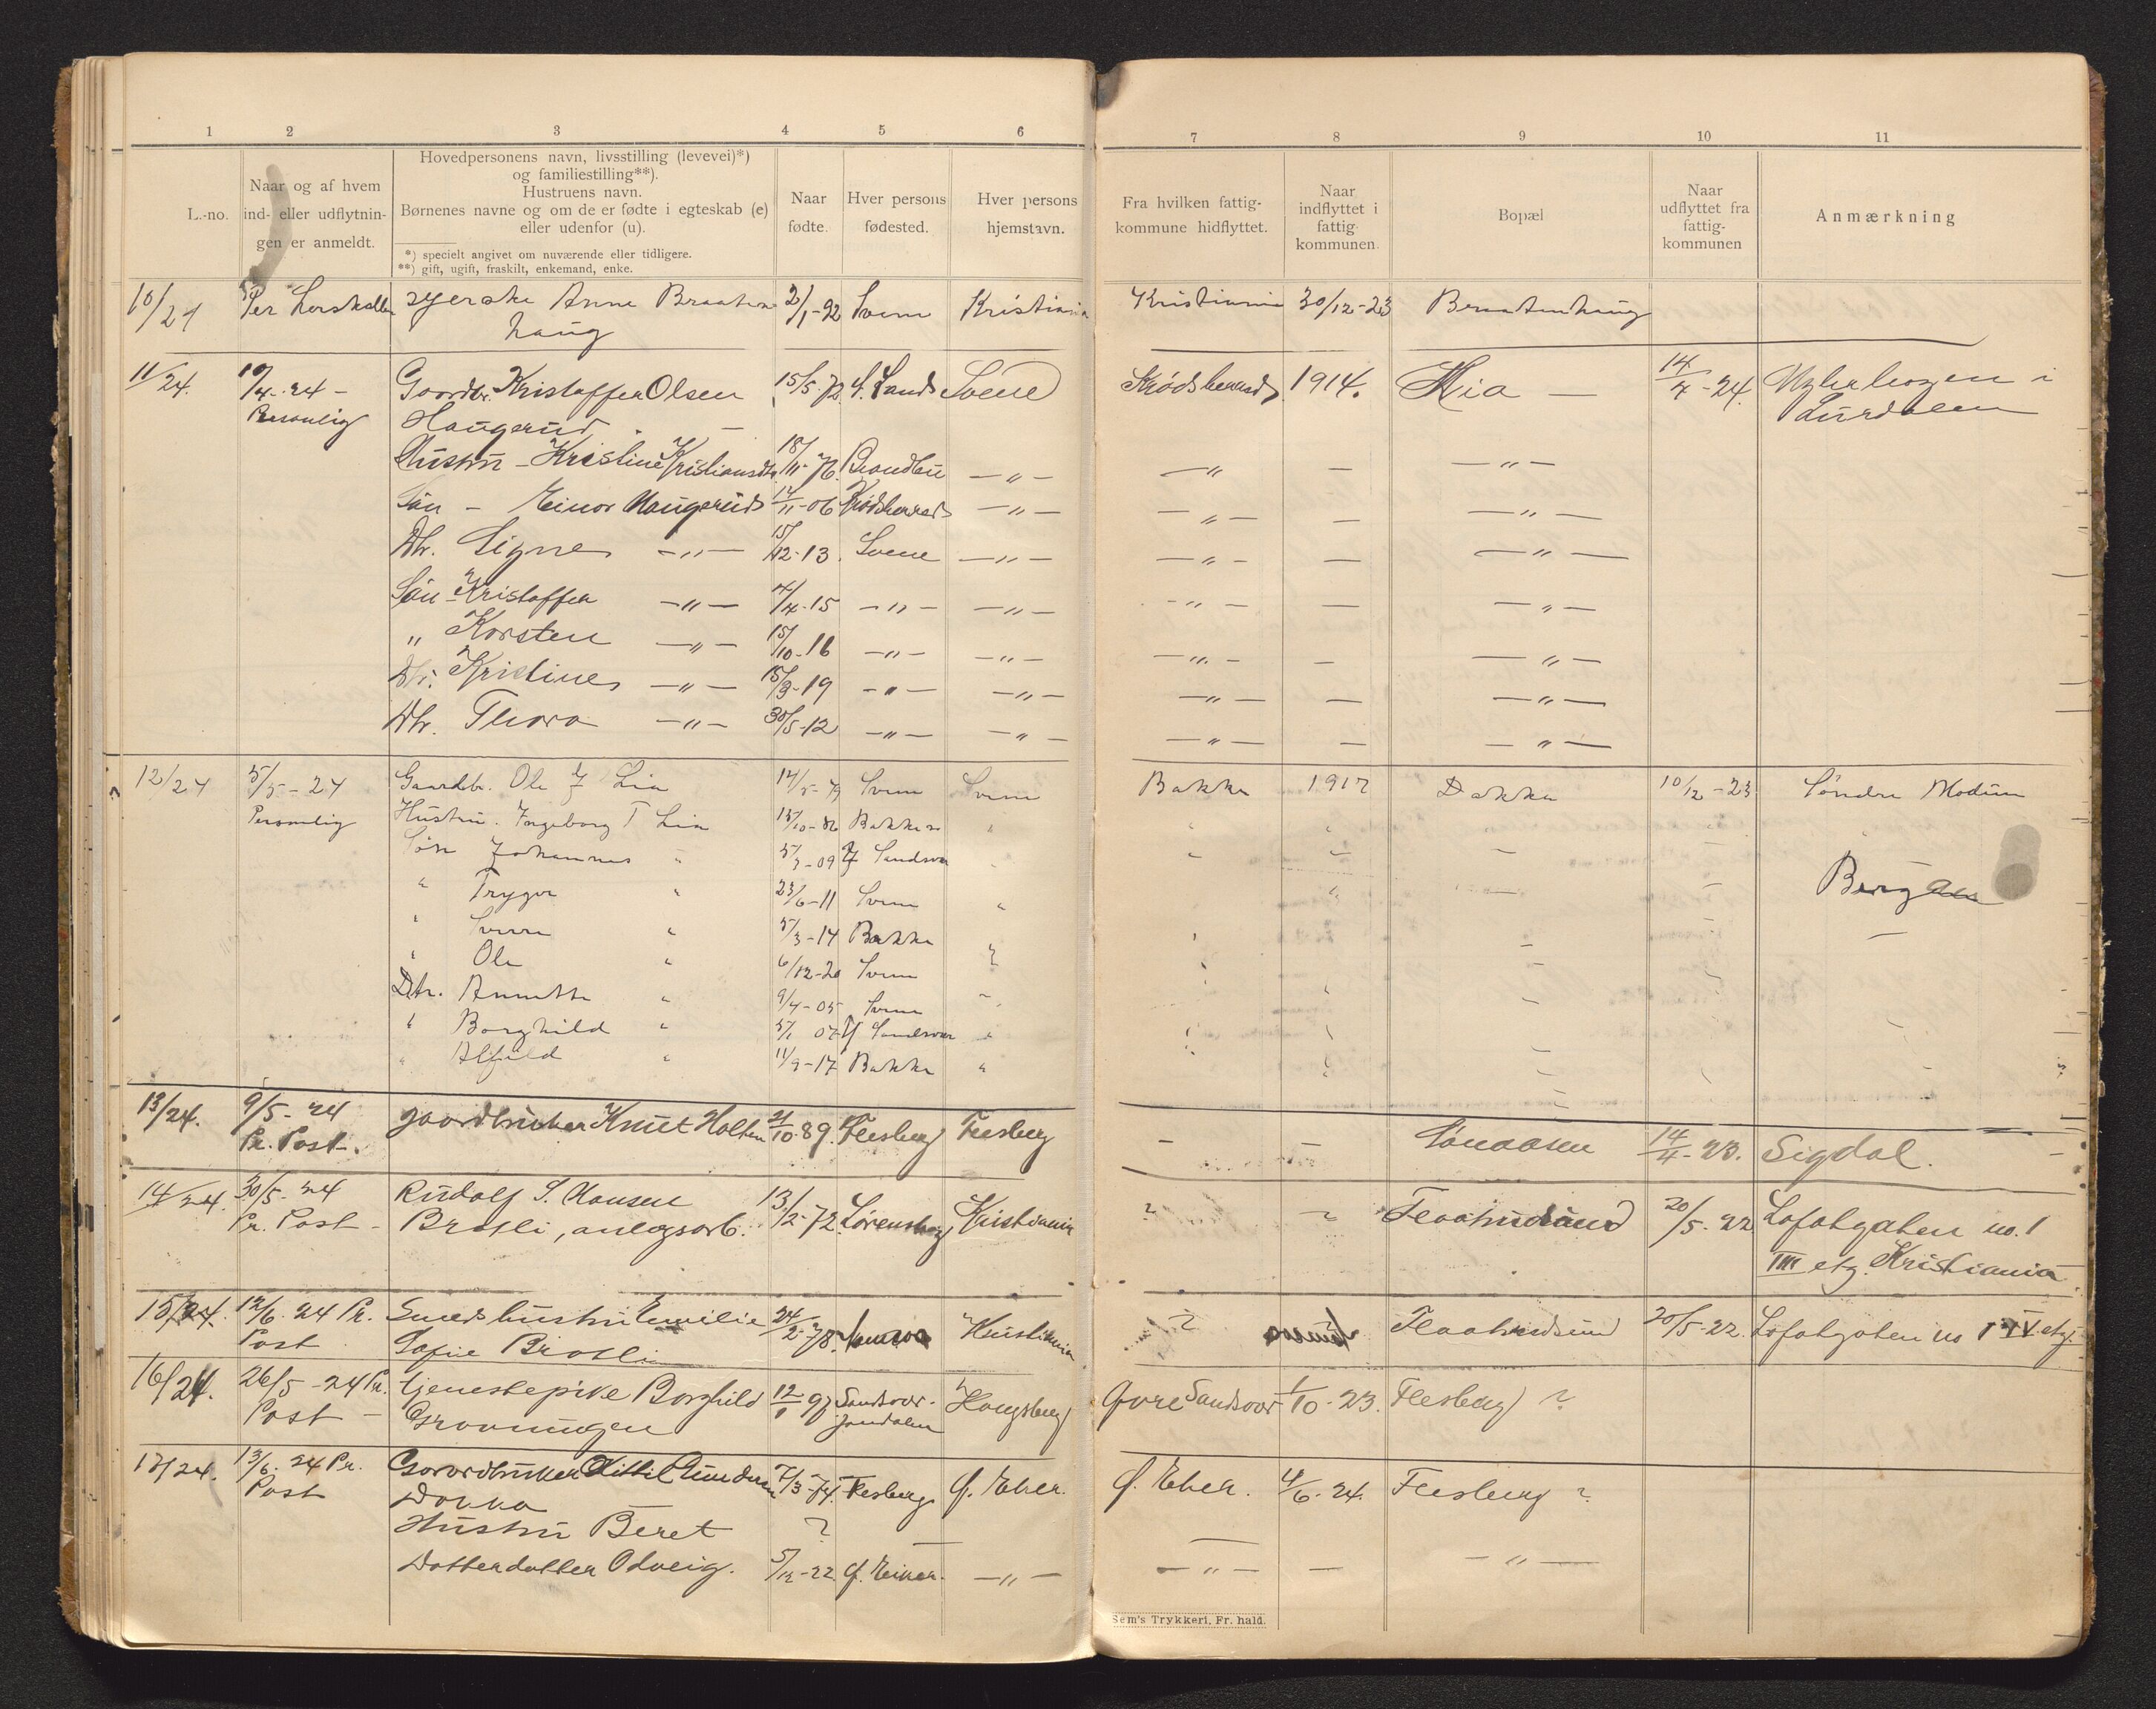 1 2 3 4 5 6 7 8 9 10 11
L.-no.
Naar og af hvem
ind- eller udflytnin-
gen er anmeldt.
Hovedpersonens navn, livsstilling (levevei)*)
og familiestilling**).
Hustruens navn.
Børnenes navne og om de er fødte i egteskab (e)
eller udenfor (u).
*) specielt angivet om nuværende eller tidligere.
**) gift, ugift, fraskilt, enkemand, enke.
Naar
fødte.
Hver persons
fødested.
Hver persons
hjemstavn.
Fra hvilken fattig-
kommune hidflyttet.
Naar
indflyttet i
fattig
kommunen.
Bopæl
Naar
udflyttet fra
fattig-
kommunen
Anmærkning
10/24 Per syerske Anne Braaten 2/1-92 Svene Kristiania Kristiania 30/12-23 Braatenhaug
haug
11/24. 19/4-24 - Gaardbr. Kristoffer Olsen 15/5-72 S. Sands Svene Krødsherred 1914. Lia — 14/4-24 i
Personlig Haugerud - Lurdalen
Hustru - Kristine Kristiansdtr. 18/11-76 Brandbu —〃— —〃 — —〃—
Søn - Einar Haugerud 14/11-06 Krødsherred —〃— —〃— — —〃—
Dtr. Signe —〃— 15/12-13. Svene —〃— —〃— — —〃—
Søn - Kristoffer —〃— 4/4-15 —〃— —〃— —〃— — —〃—
〃 Korsten —〃— 15/10-16 —〃— —〃— —〃— — —〃—
Dtr. Kristine —〃— 15/3-19 —〃— —〃— —〃— — —〃—
Dtr. Thora —〃— 30/5-12 —〃— —〃— —〃— — —〃—
12/24 5/5-24 Gaardbr. Ole J Lia Svene Svene Bakke 1917 Bakke 10/12-23 Søndre Modum
Personlig Hustru. Ingeborg T Lia 15/10-86 Bakke 〃
Søn Johannes 〃 5/3-09 Y Sandsvær
〃 Trygve 〃 23/6-11 Svene 〃 Bergan
〃 Sverre 〃 5/3-14 Bakke
〃 Ole 〃 6/12-20 Svene
Dtr. Annette 〃 9/4-05 Svene
〃 Borghild 〃 5/1 07 Y Sandsvær 〃
〃 Alfhild 〃 11/9-17 Bakke 〃
13/24. 9/5-24 gaardbruker Knut Holten 21/10-89. Flesberg Flesberg — — 14/4-23. Sigdal.
Pr. Post-.
14/24. 30/5-24 Rudolf S. Hansen 13/2-72. Sørensberg Kristiania ? ? Flaatnedsund 20/5-22 Lofotgaten no. 1
Pr. Post - Brosli, anlegsarb. III etg. Kristiania
15/24. 12/6. 24 Pr. Smedshustru Emilie 24/2-78. Kristiania ? Flaatnedsund 20/5-22. Lofotgaten no 1 IV etg.
Post Sofie Brosli
16/24. 26/5-24 Pr. tjenestepike Borghild 12/1 97 Sandsvær- Kongsberg Øvre Sandsvær 1/10-23. Flesberg ?
Post - Grovningen Jondalen
17/24. 13/6. 24 Pr. Gaardbruker Kittil Gundersen 7/3-74. Flesberg. Ø. Eker. Ø. Eker. 4/6-24. Flesberg ?
Post Dokka
Hustru Beret ? —
Datterdatter Odveig. 5/12-22 Ø. Eiker. —〃— —〃— — —〃—
Sem's Trykkeri. Fr. hald.